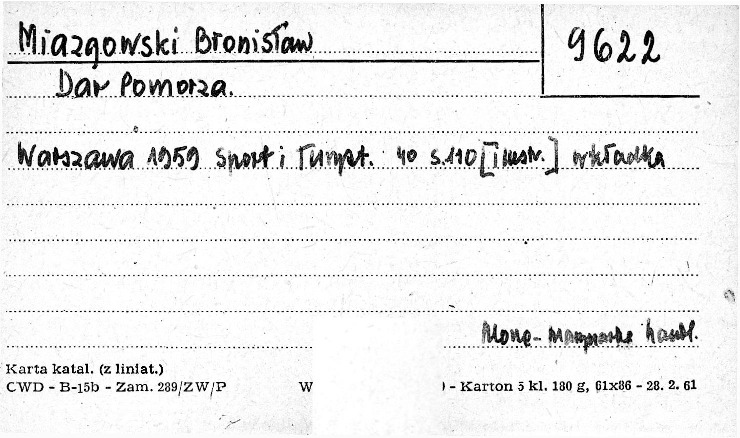 Miazgowski Bronisław
9622
Dar Pomorza.
Warszawa 1959 Sport i Turyst. 40 s. 110 [ilustr.] wkładka
handl.
Karta katal. (z liniat.)
CWD - B-15b - Zam. 289/ZW/P W ) - Karton 5 kl. 180 g, 61x86 - 28. 2. 61